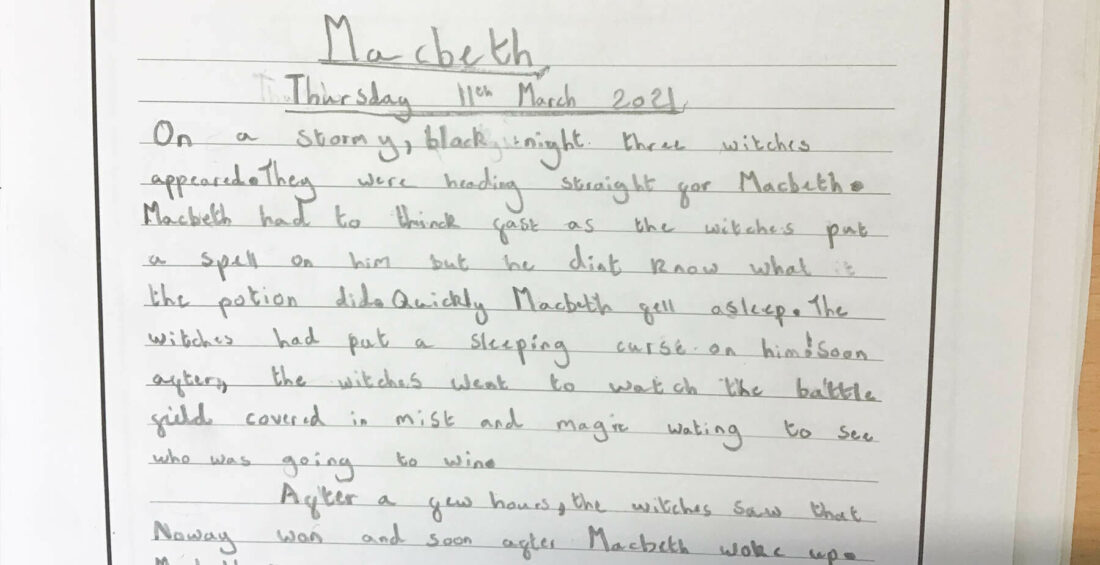 Macbeth
Thursday 11th March 2021
On a stormy, black night. three witches
appeared. They were heading straight for Macbeth.
Macbeth had to thinck fast as the witches put
a spell on him but he dint know what
the potion did. Quickly Macbeth fell asleep. The
witches had put a sleeping curse on him! Soon
after, the witches went to watch the battle
field covered in mist and magic wating to see
who was going to win.
After a few hours, the witches saw that
Noway won and soon after Macbeth woke up.